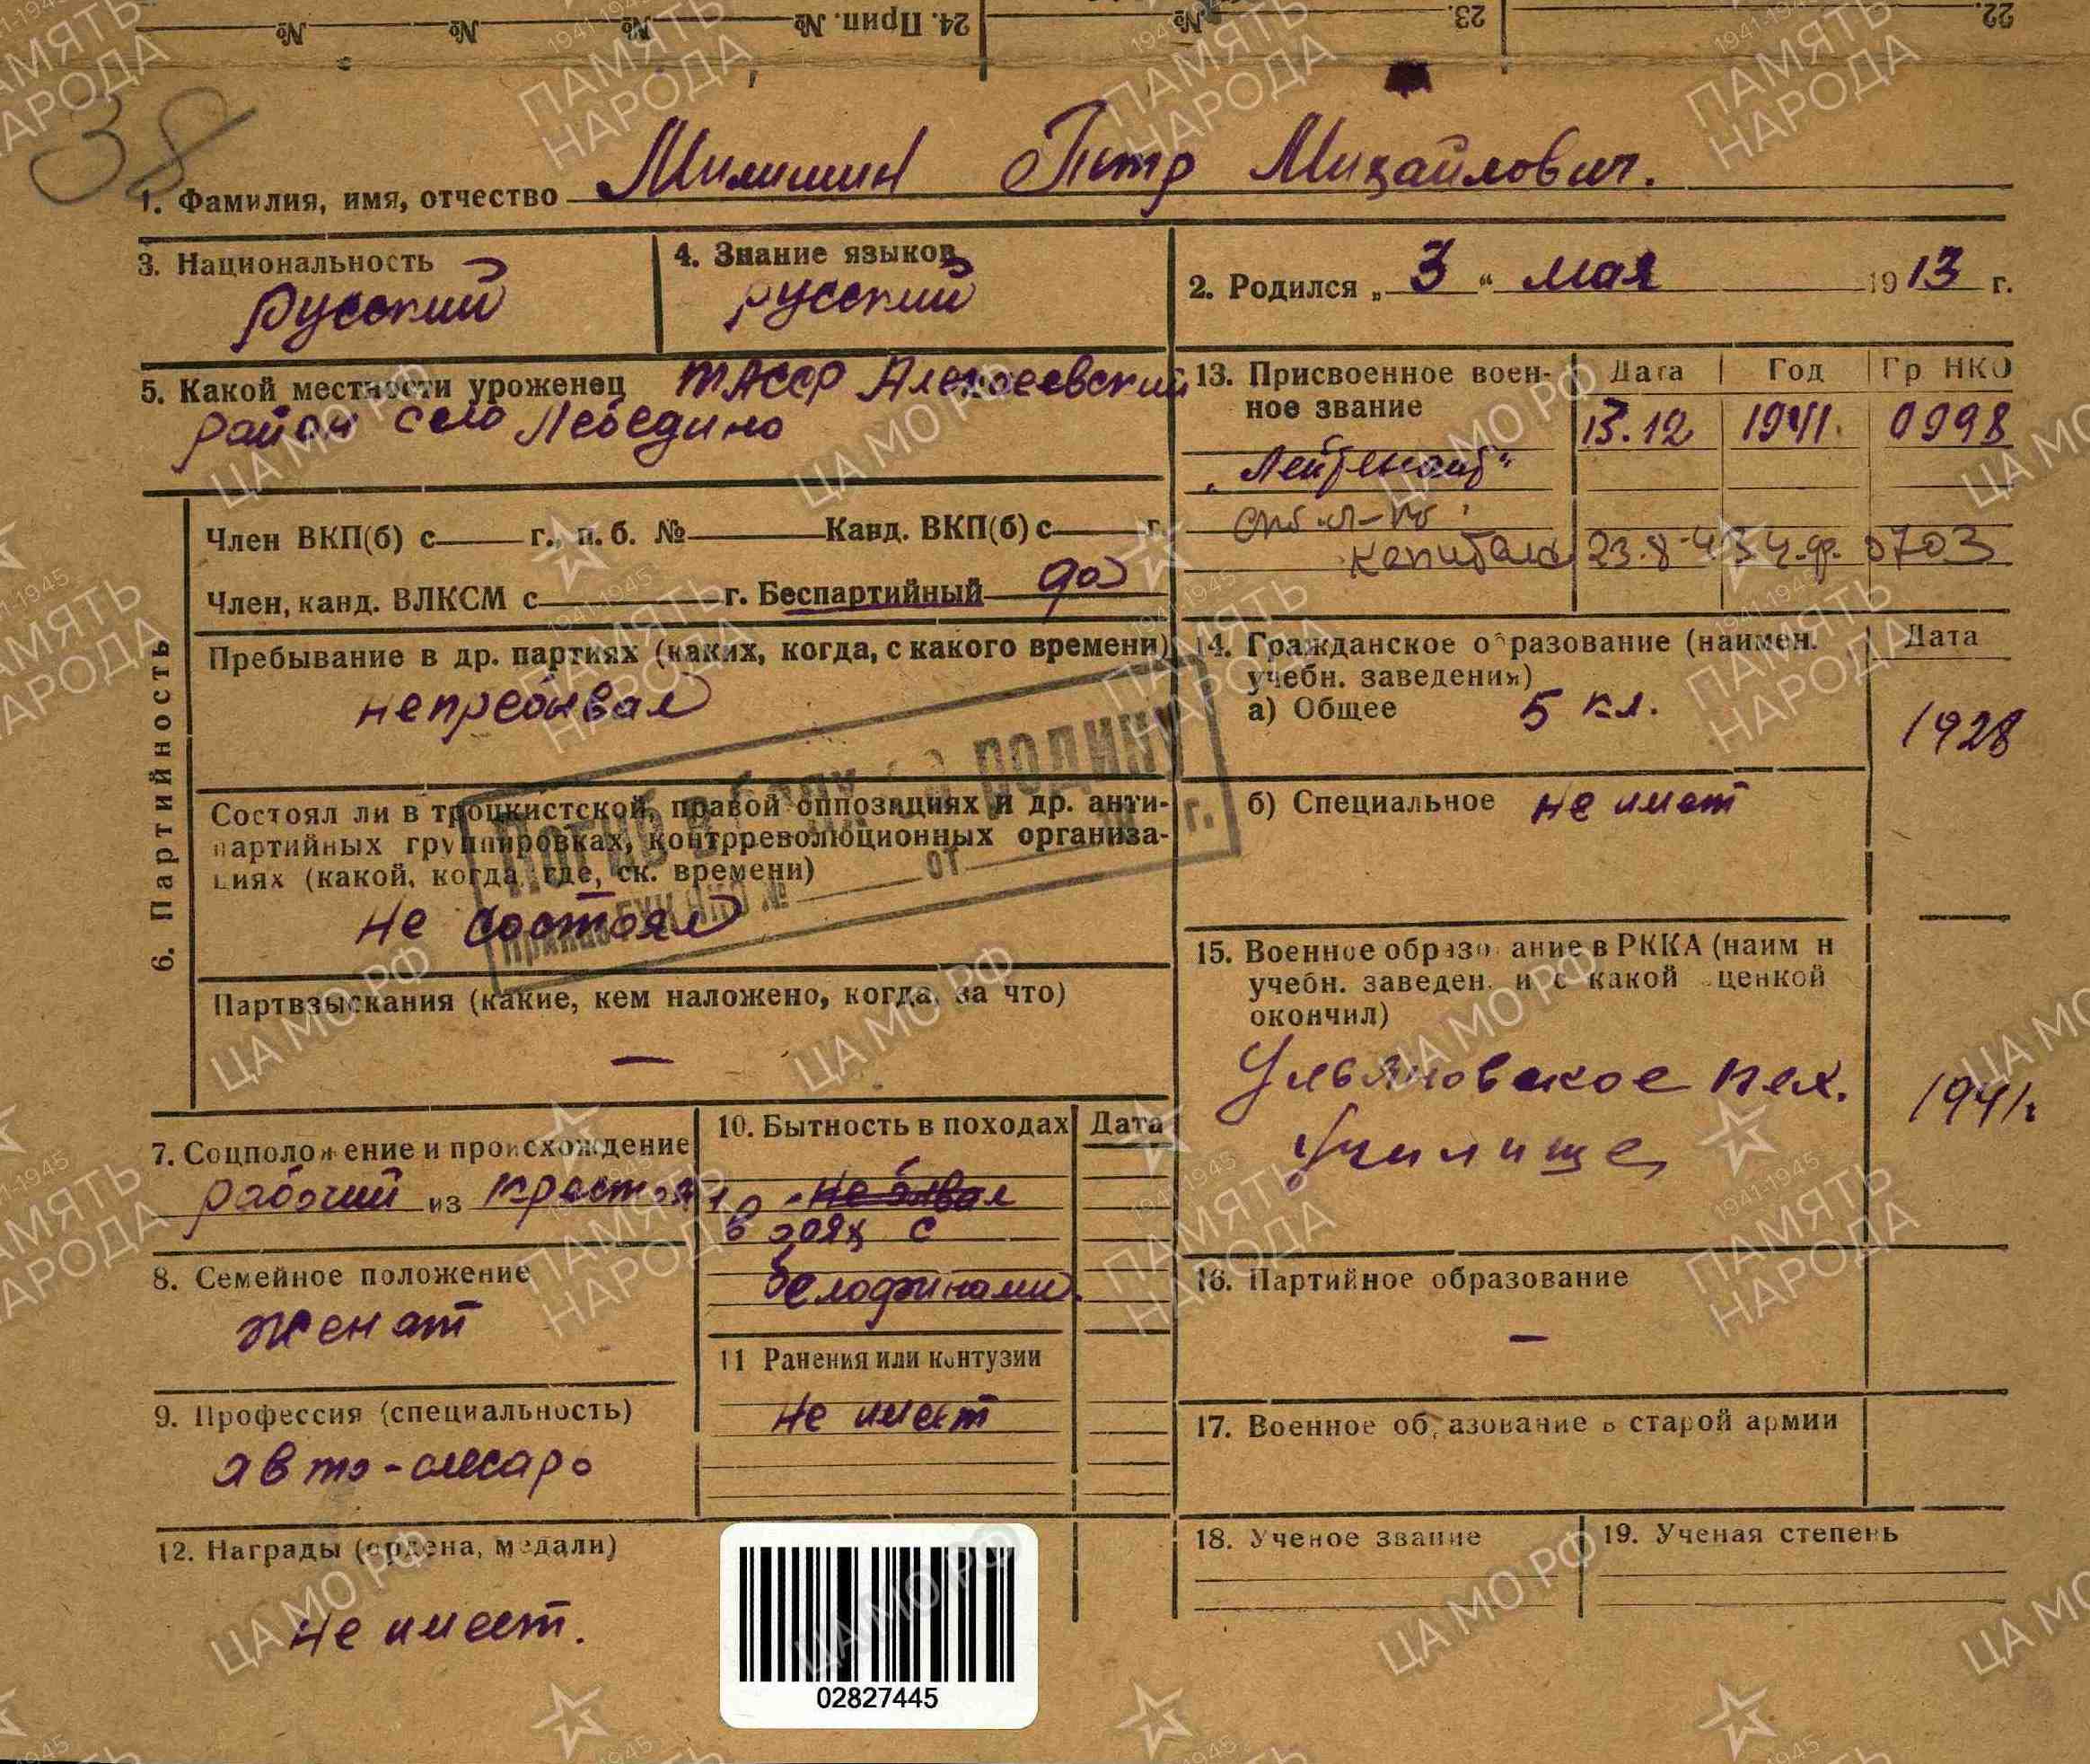 22.
23.
№
24. Прип. №
№
№
№
38
1. Фамилия, имя, отчество Милишин Петр Михайлович.
3. Национальность
русский
4. Знание языков
русский
2. Родился „ 3 “ мая 1913 г.
5. Какой местности уроженец ТАССР Алексеевский
район село Лебедино
6. Партийность
Член ВКП(б) с г., п. б. № Канд. ВКП(б) с г.
Член, канд. ВЛКСМ с г. Беспартийный да
Пребывание в др. партиях (каких, когда, с какого времени)
не пребывал
Состоял ли в троцкистской, правой оппозициях и др. анти-
партийных группировках, контрреволюционных организа-
циях (какой, когда, где, ск. времени)
не состоял
Погиб в боях за Родину
Приказ ГУК НКО № от г.
Партвзыскания (какие, кем наложено, когда, за что)
—
7. Соцположение и происхождение
рабочий из крестьян
8. Семейное положение
женат
9. Профессия (специальность)
авто-слесарь
10. Бытность в походах Дата
не бывал
в боях с
белофинами.
11 Ранения или контузии
Не имеет
12. Награды (ордена, медали)
Не имеет.
13. Присвоенное воен-
ное звание
Дата Год Гр НКО
„Лейтенант“ 13.12 1941. 0998
ст. л-т
капитан 23.8.43 4.ф. 0703
14. Гражданское образование (наимен.
учебн. заведения)
Дата
а) Общее 5 кл. 1928
б) Специальное не имеет
15. Военное образование в РККА (наимен
учебн. заведен. и с какой оценкой
окончил)
Ульяновское пех.
Училище 1941г.
16. Партийное образование
—
17. Военное образование в старой армии
18. Ученое звание
19. Ученая степень
02827445
ПАМЯТЬ НАРОДА
1941-1945
ЦА МО РФ